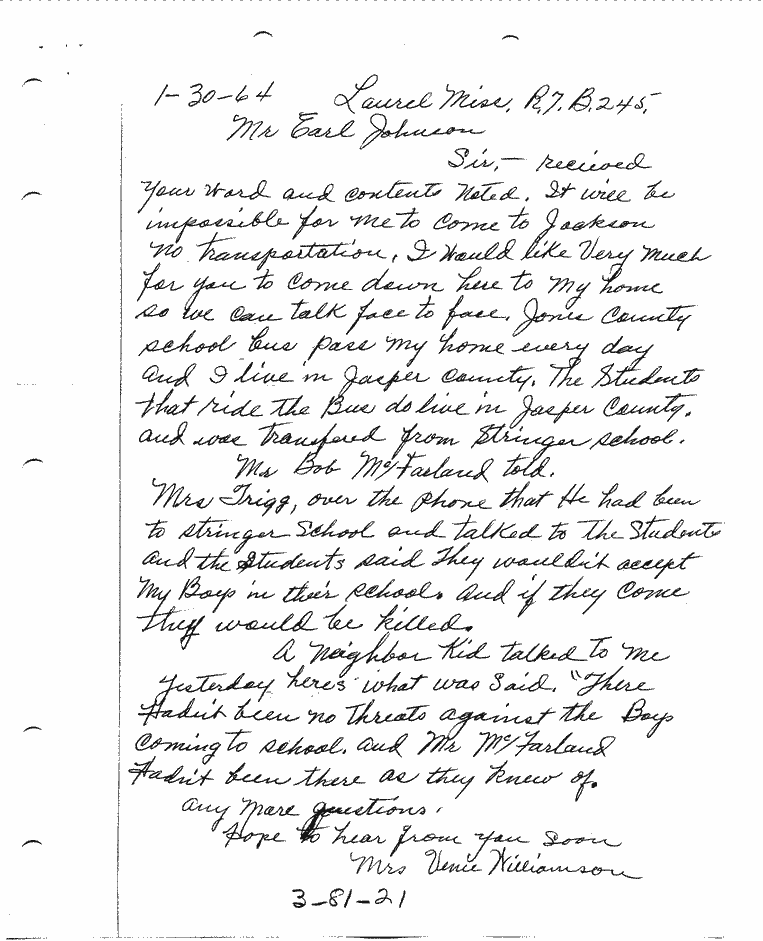 1-30-64 Laurel Miss. R.7. B.245.
Mr Earl Johnson
Sir, — recieved
your word and contents noted. It will be
impossible for me to come to Jackson
no transportation, I would like very much
for you to come down here to my home
so we can talk face to face. Jones County
school bus pass my home every day
and I live in Jasper County. The Students
that ride the Bus do live in Jasper County.
and was transfered from Stringer school.
Mr Bob McFarland told.
Mrs Trigg, over the phone that He had been
to stringer School and talked to the Students
and the Students said They wouldn't accept
my Boys in their school. and if they come
they would be killed.
A neighbor Kid talked to me
yesterday here's what was said. "There
Hadn't been no threats against the Boys
coming to school. and Mr McFarland
Hadn't been there as they knew of.
any more questions.
Hope to hear from you soon
Mrs Venie Williamson
3-81-21